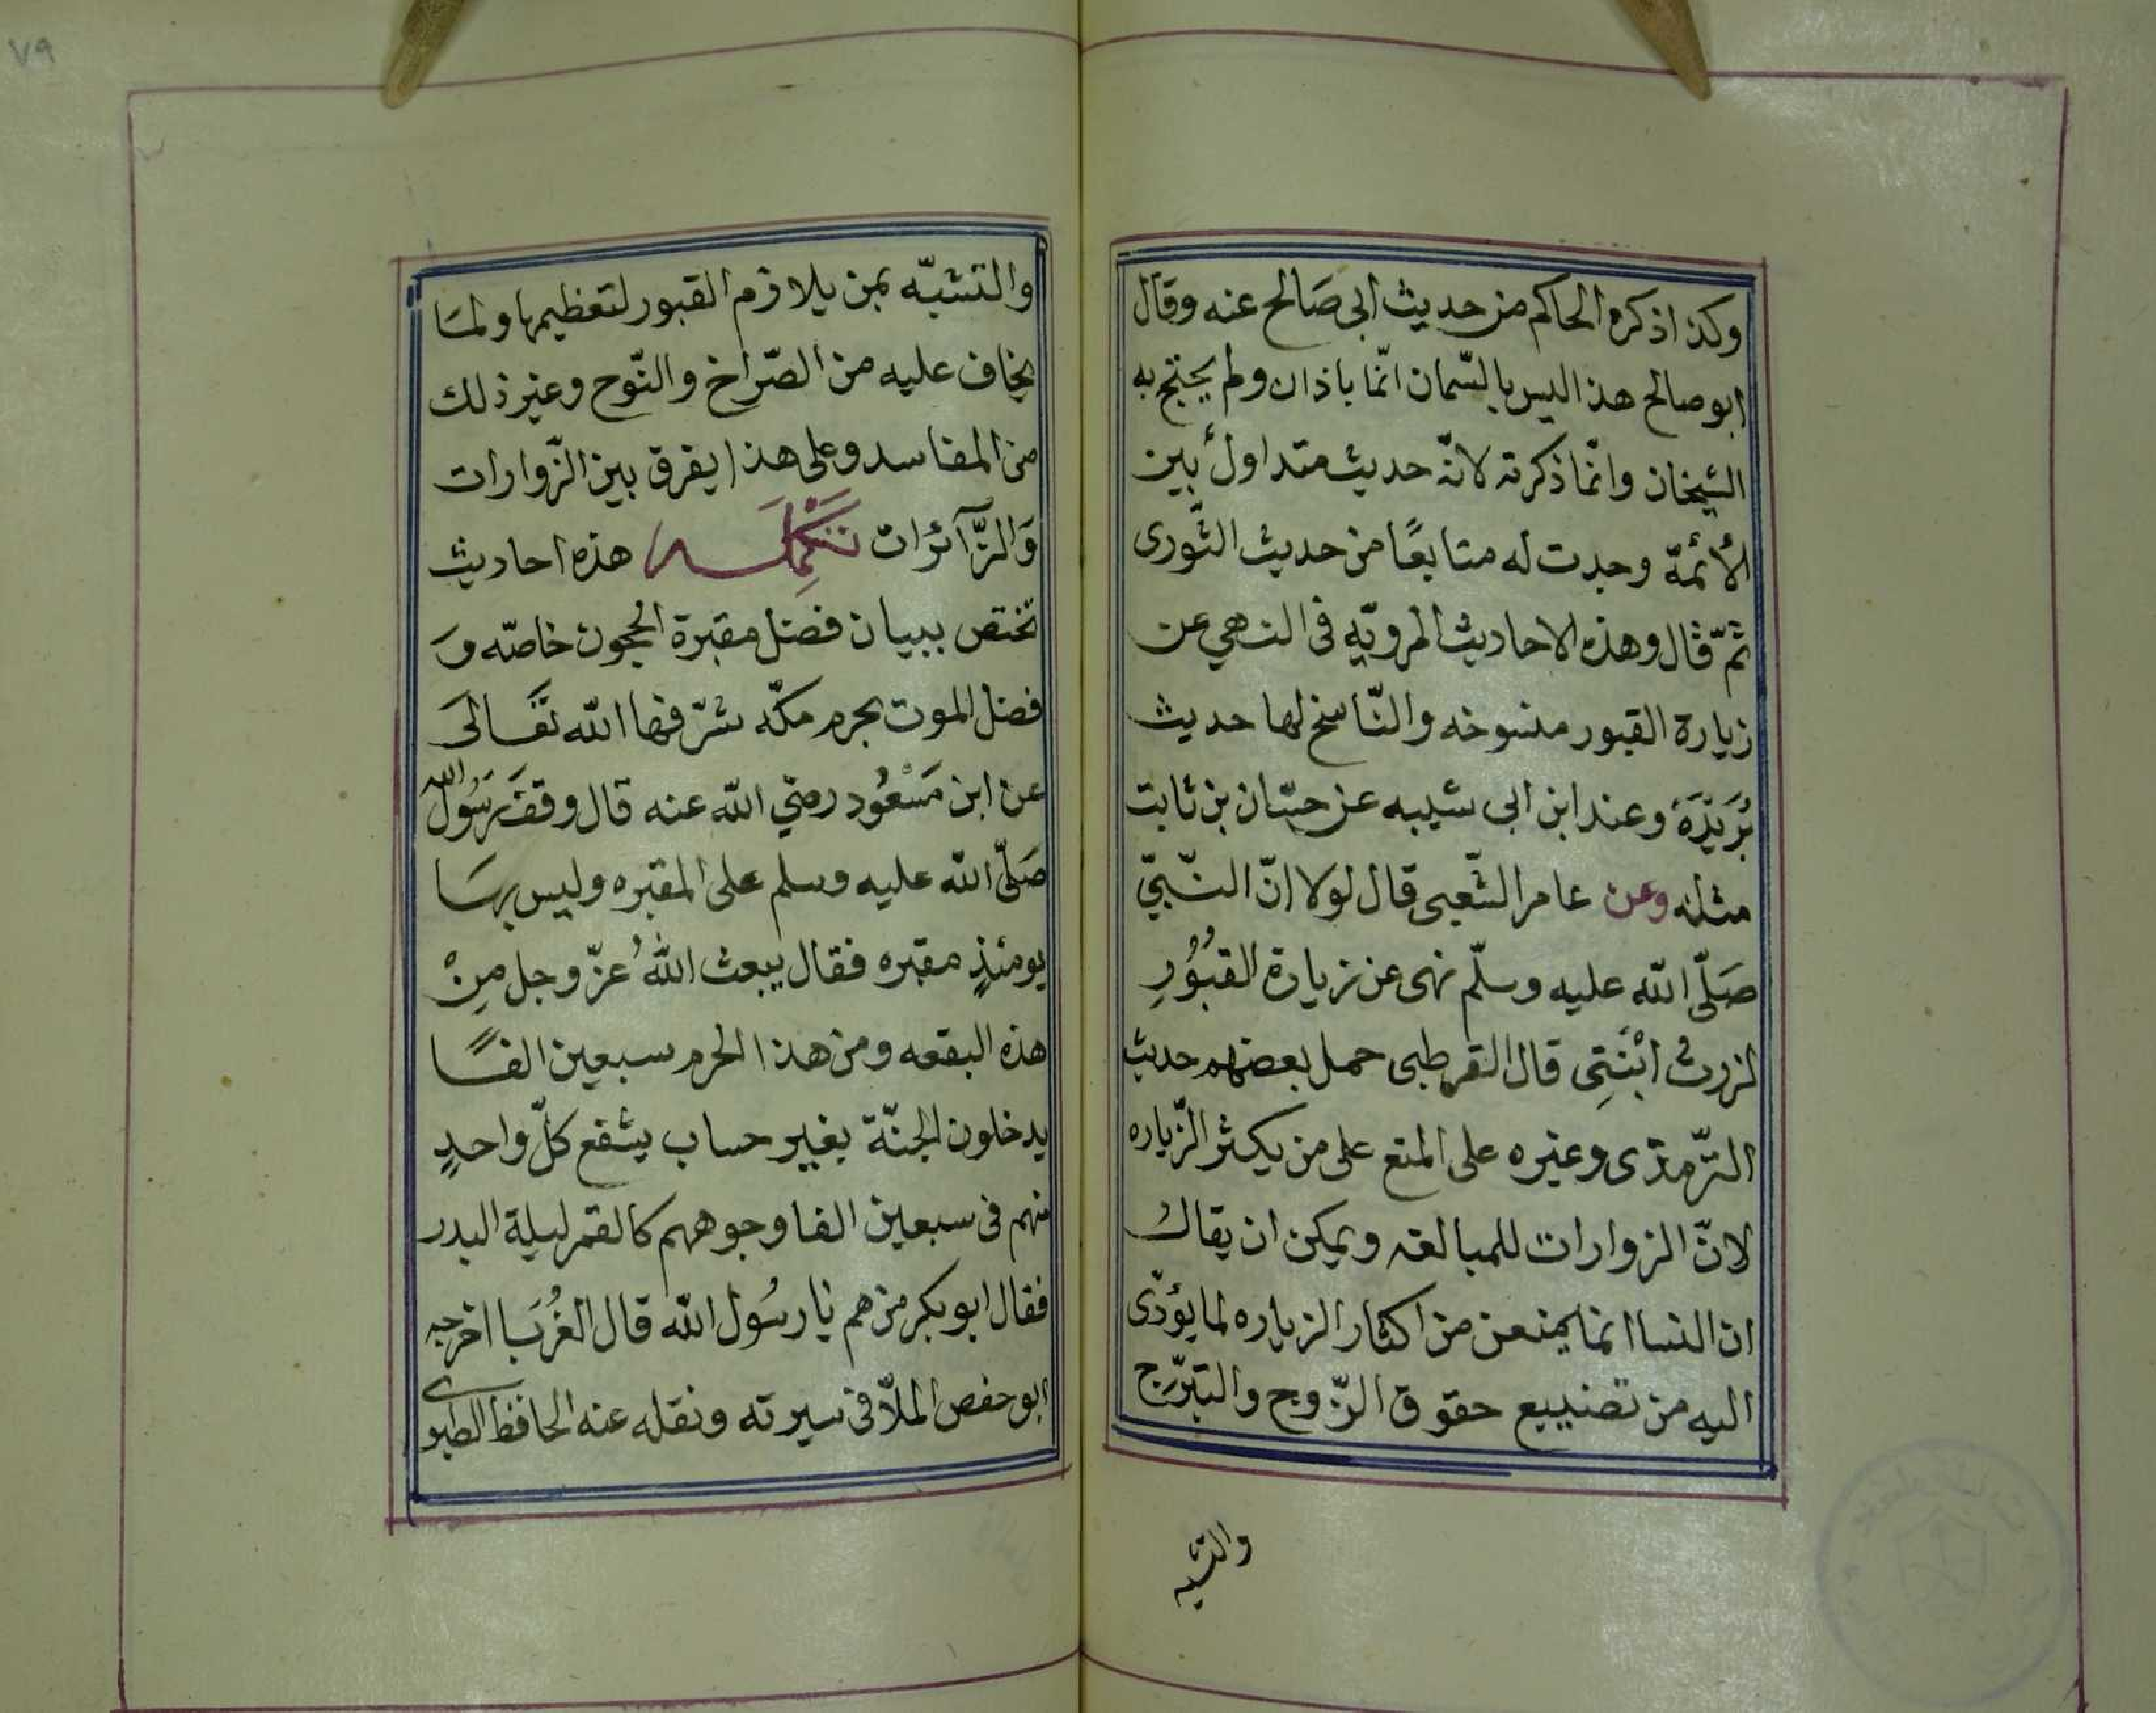 وكذا ذكره الحاكم من حديث ابى صَالح عنه وقال
ابو صالح هذا ليس بالسّمان انّما باذان ولم يحتج به
الشيخان وانّما ذكرته لانّه حديث متداول بين
الأئمّة وجدت له متابعًا من حديث الثّورى
ثمّ قال وهذه الاحاديث المرويّه فى النهي عن
زيارة القبور منسوخه والنّاسخ لها حديث
بُرَيْدَةَ وعند ابن ابى شيبه عن حسّان بن ثابت
مثله وعن عامر الشّعبى قال لولا انّ النّبيّ
صَلّى الله عليه وسلّم نهى عن زيارة القبُوُرِ
لزرت ابْنَتِى قال القرطبى حمل بعضهم حديث
التّرمذى وغيره على المنع على من يكثر الزّياره
لانّ الزوارات للمبالغه ويمكن ان يقال
ان النسا انما يمنعن من اكثار الزياره لما يؤدّى
اليه من تضييع حقوق الزّوج والتبرّج
والتشبه
٧٩
والتشبّه بمن يلازم القبور لتعظيمها ولمَا
يخاف عليه من الصّراخ والنّوح وغير ذلك
من المفاسد وعلى هذا يفرق بين الزّوارات
وَالزَّآئرات تَكْمِلَه هذه احاديث
تختص ببيان فضل مقبرة الحجون خاصّه وَ
فضل الموت بحرم مكّه شرّفها الله تعَالىَ
عن ابن مَسْعُود رضي الله عنه قال وقفَ رَسُول الله
صَلّى الله عليه وسلم على المقبره وليس بهَا
يومئذٍ مقبره فقال يبعث اللهُ عزّ وجل مِنْ
هذه البقعه ومن هذا الحرم سبعين الفًا
يدخلون الجنّة بغير حساب يشفع كلّ واحدٍ
منهم فى سبعين الفا وجوههم كالقمر ليلة البدر
فقال ابو بكر من هم يا رسُول الله قال الغُرَبَا اخرجه
ابو حفص الملّا فى سيرته ونقله عنه الحافظ الطبرى